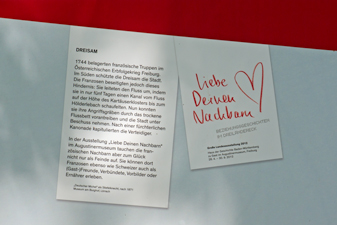 DREISAM
1744 belagerten französische Truppen im
Österreichischen Erbfolgekrieg Freiburg.
Im Süden schützte die Dreisam die Stadt.
Die Franzosen beseitigten jedoch dieses
Hindernis: Sie leiteten den Fluss um, indem
sie in nur fünf Tagen einen Kanal vom Fluss
auf der Höhe des Kartäuserklosters bis zum
Hölderlebach schaufelten. Nun konnten
sie ihre Angriffsgräben durch das trockene
Flussbett vorantreiben und die Stadt unter
Beschuss nehmen. Nach einer fürchterlichen
Kanonade kapitulierten die Verteidiger.
In der Ausstellung „Liebe Deinen Nachbarn"
im Augustinermuseum tauchen die fran-
zösischen Nachbarn aber zum Glück
nicht nur als Feinde auf. Sie können dort
Franzosen ebenso wie Schweizer auch als
(Gast-)Freunde, Verbündete, Vorbilder oder
Ernährer erleben.
Liebe
Deinen
Nachbarn
BEZIEHUNGSGESCHICHTEN
IM DREILÄNDERECK